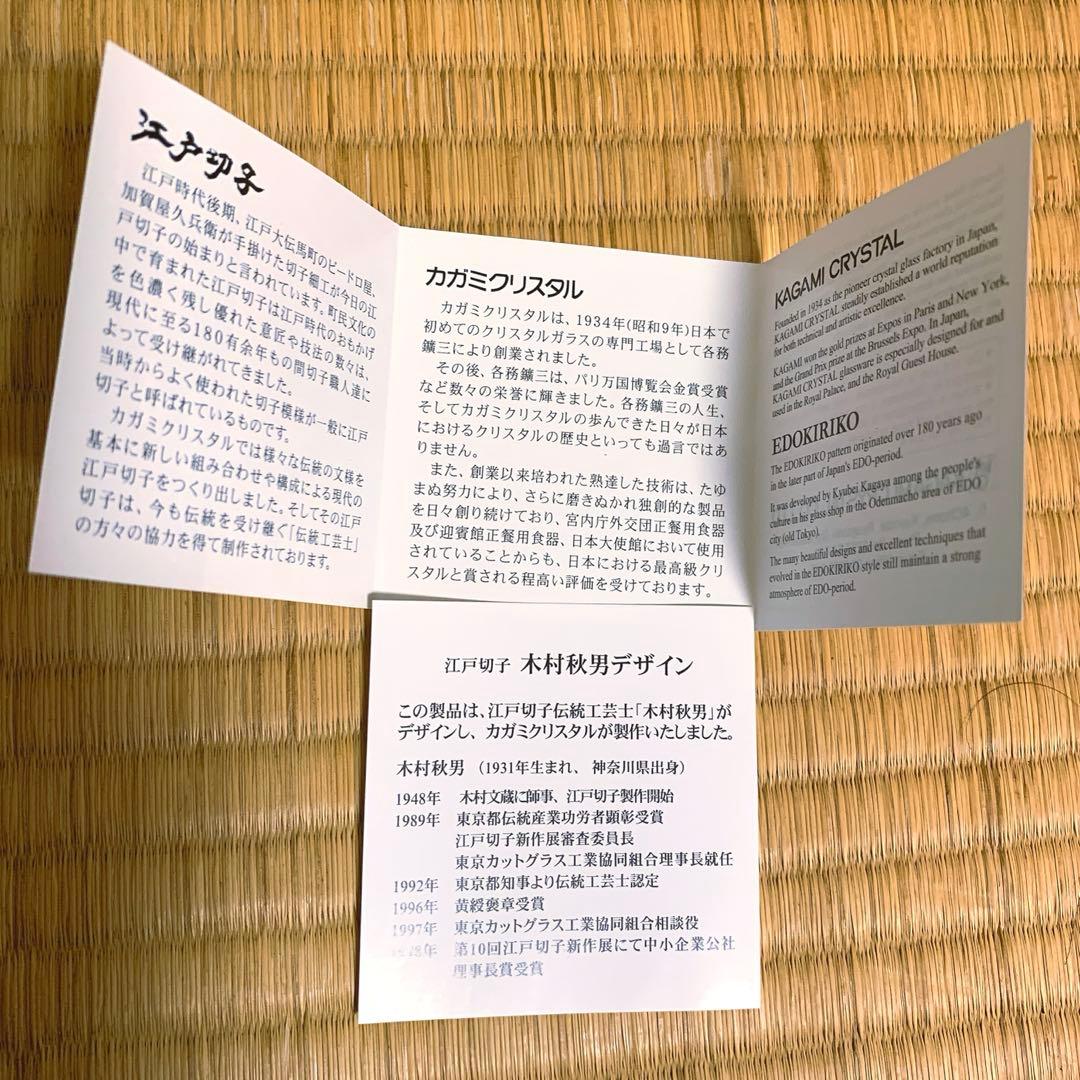 江戸切子
江戸時代後期、江戸大伝馬町のビードロ屋、
加賀屋久兵衛が手掛けた切子細工が今日の江
戸切子の始まりと言われています。町民文化の
中で育まれた江戸切子は江戸時代のおもかげ
を色濃く残し優れた意匠や技法の数々は、
現代に至る180有余年もの間切子職人達に
よって受け継がれてきました。
当時からよく使われた切子模様が一般に江戸
切子と呼ばれているものです。
カガミクリスタルでは様々な伝統の文様を
基本に新しい組み合わせや構成による現代の
江戸切子をつくり出しました。そしてその江戸
切子は、今も伝統を受け継ぐ「伝統工芸士」
の方々の協力を得て制作されております。
カガミクリスタル
カガミクリスタルは、1934年(昭和9年)日本で
初めてのクリスタルガラスの専門工場として各務
鑛三により創業されました。
その後、各務鑛三は、パリ万国博覧会金賞受賞
など数々の栄誉に輝きました。各務鑛三の人生、
そしてカガミクリスタルの歩んできた日々が日本
におけるクリスタルの歴史といっても過言ではあ
りません。
また、創業以来培われた熟達した技術は、たゆ
まぬ努力により、さらに磨きぬかれ独創的な製品
を日々創り続けており、宮内庁外交団正餐用食器
及び迎賓館正餐用食器、日本大使館において使用
されていることからも、日本における最高級クリ
スタルと賞される程高い評価を受けております。
KAGAMI CRYSTAL
Founded in 1934 as the pioneer crystal glass factory in Japan,
KAGAMI CRYSTAL steadily established a world reputation
for both technical and artistic excellence.
KAGAMI won the gold prizes at Expos in Paris and New York,
and the Grand Prix prize at the Brussels Expo. In Japan,
KAGAMI CRYSTAL glassware is especially designed for and
used in the Royal Palace, and the Royal Guest House.
EDOKIRIKO
The EDOKIRIKO pattern originated over 180 years ago
in the later part of Japan's EDO-period.
It was developed by Kyubei Kagaya among the people's
culture in his glass shop in the Odenmacho area of EDO
city (old Tokyo).
The many beautiful designs and excellent techniques that
evolved in the EDOKIRIKO style still maintain a strong
atmosphere of EDO-period.
江戸切子 木村秋男デザイン
この製品は、江戸切子伝統工芸士「木村秋男」が
デザインし、カガミクリスタルが製作いたしました。
木村秋男 (1931年生まれ、神奈川県出身)
1948年 木村文蔵に師事、江戸切子製作開始
1989年 東京都伝統産業功労者顕彰受賞
江戸切子新作展審査委員長
東京カットグラス工業協同組合理事長就任
1992年 東京都知事より伝統工芸士認定
1996年 黄綬褒章受賞
1997年 東京カットグラス工業協同組合相談役
年 第10回江戸切子新作展にて中小企業公社
理事長賞受賞